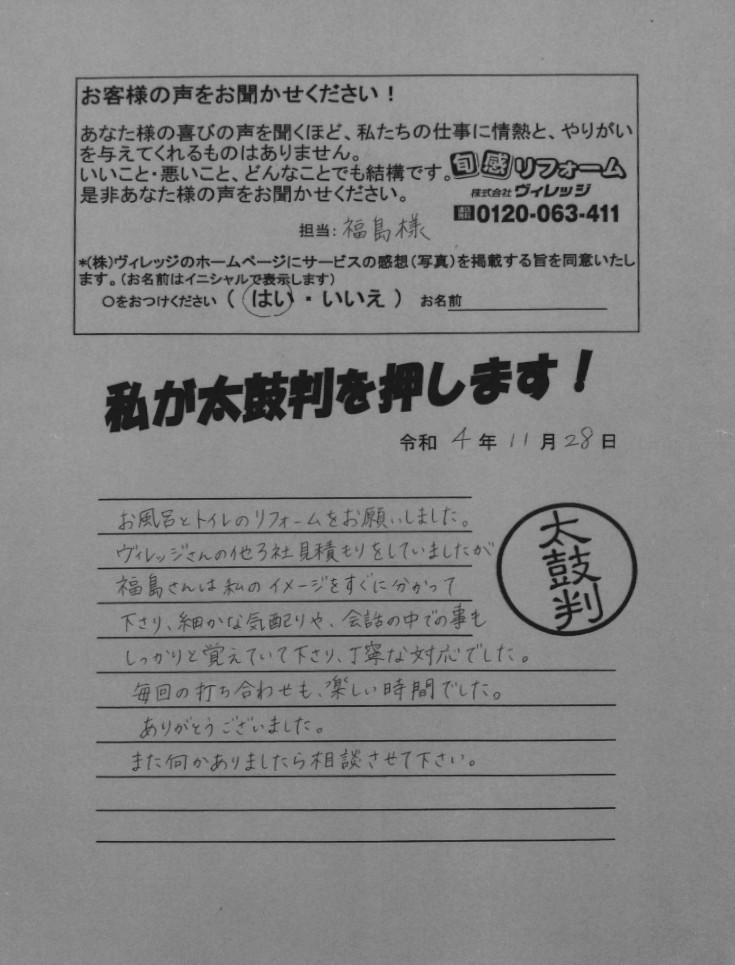 お客様の声をお聞かせください！
あなた様の喜びの声を聞くほど、私たちの仕事に情熱と、やりがい
を与えてくれるものはありません。
いいこと・悪いこと、どんなことでも結構です。
是非あなた様の声をお聞かせください。
旬感リフォーム
株式会社ヴィレッジ
0120-063-411
担当：福島様
*(株)ヴィレッジのホームページにサービスの感想（写真）を掲載する旨を同意いたし
ます。（お名前はイニシャルで表示します）
○をおつけください（ はい ・ いいえ ） お名前
私が太鼓判を押します！
令和 4 年 11 月 28 日
お風呂とトイレのリフォームをお願いしました。
ヴィレッジさんの他3社見積もりをしていましたが
福島さんは私のイメージをすぐに分かって
下さり、細かな気配りや、会話の中での事も
しっかりと覚えていて下さり、丁寧な対応でした。
毎回の打ち合わせも、楽しい時間でした。
ありがとうございました。
また何かありましたら相談させて下さい。
太鼓判